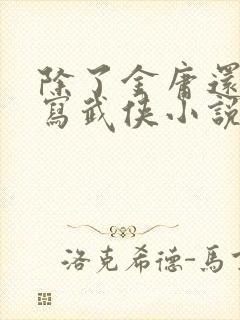 除了金庸還
寫武俠小說
洛克希德-馬丁